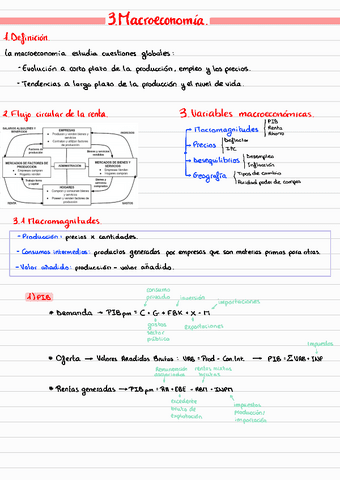 3. Macroeconomía.
1. Definición
La macroeconomía estudia cuestiones globales:
- Evolución a corto plazo de la producción, empleo y los precios.
- Tendencias a largo plazo de la producción y el nivel de vida.
2. Flujo circular de la renta.
SALARIOS ALQUILERES Y BENEFICIOS
EMPRESAS
• Producen y venden bienes y servicios
• Contratan y utilizan factores de producción
INGRESOS
Factores de producción
Bienes y servicios vendidos
MERCADOS DE FACTORES DE PRODUCCIÓN
• Empresas compran
• Hogares venden
ADMINISTRACIÓN
MERCADOS DE BIENES Y SERVICIOS
• Empresas venden
• Hogares compran
Trabajo tierra y capital
Bienes y servicios comprados
HOGARES
• Compran y consumen bienes y servicios
• Poseen y venden factores de producción
RENTA
GASTOS
3. Variables macroeconómicas.
Macromagnitudes
PIB
Renta
Ahorro
Precios
Deflactor
IPC
Desequilibrios
Desempleo
Inflación
Geografía
Tipos de cambio
Paridad poder de compra
3.1 Macromagnitudes
- Producción = precios x cantidades.
- Consumos intermedios: productos generados por empresas que son materias primas para otras.
- Valor añadido: producción - valor añadido.
1) PIB
consumo privado
inversión
importaciones
* Demanda → PIBpm = C + G + FBK + X - M
gastos sector público
exportaciones
impuestos
* Oferta → Valores Añadidos Brutos: VAB = Prod - Con.Int. → PIB = ΣVAB + INP
Remuneración asalariados
rentas mixtas brutas
* Rentas generadas → PIBpm = RA + EBE - RBM - INPM
excedente bruto de explotación
impuestos producción/importación